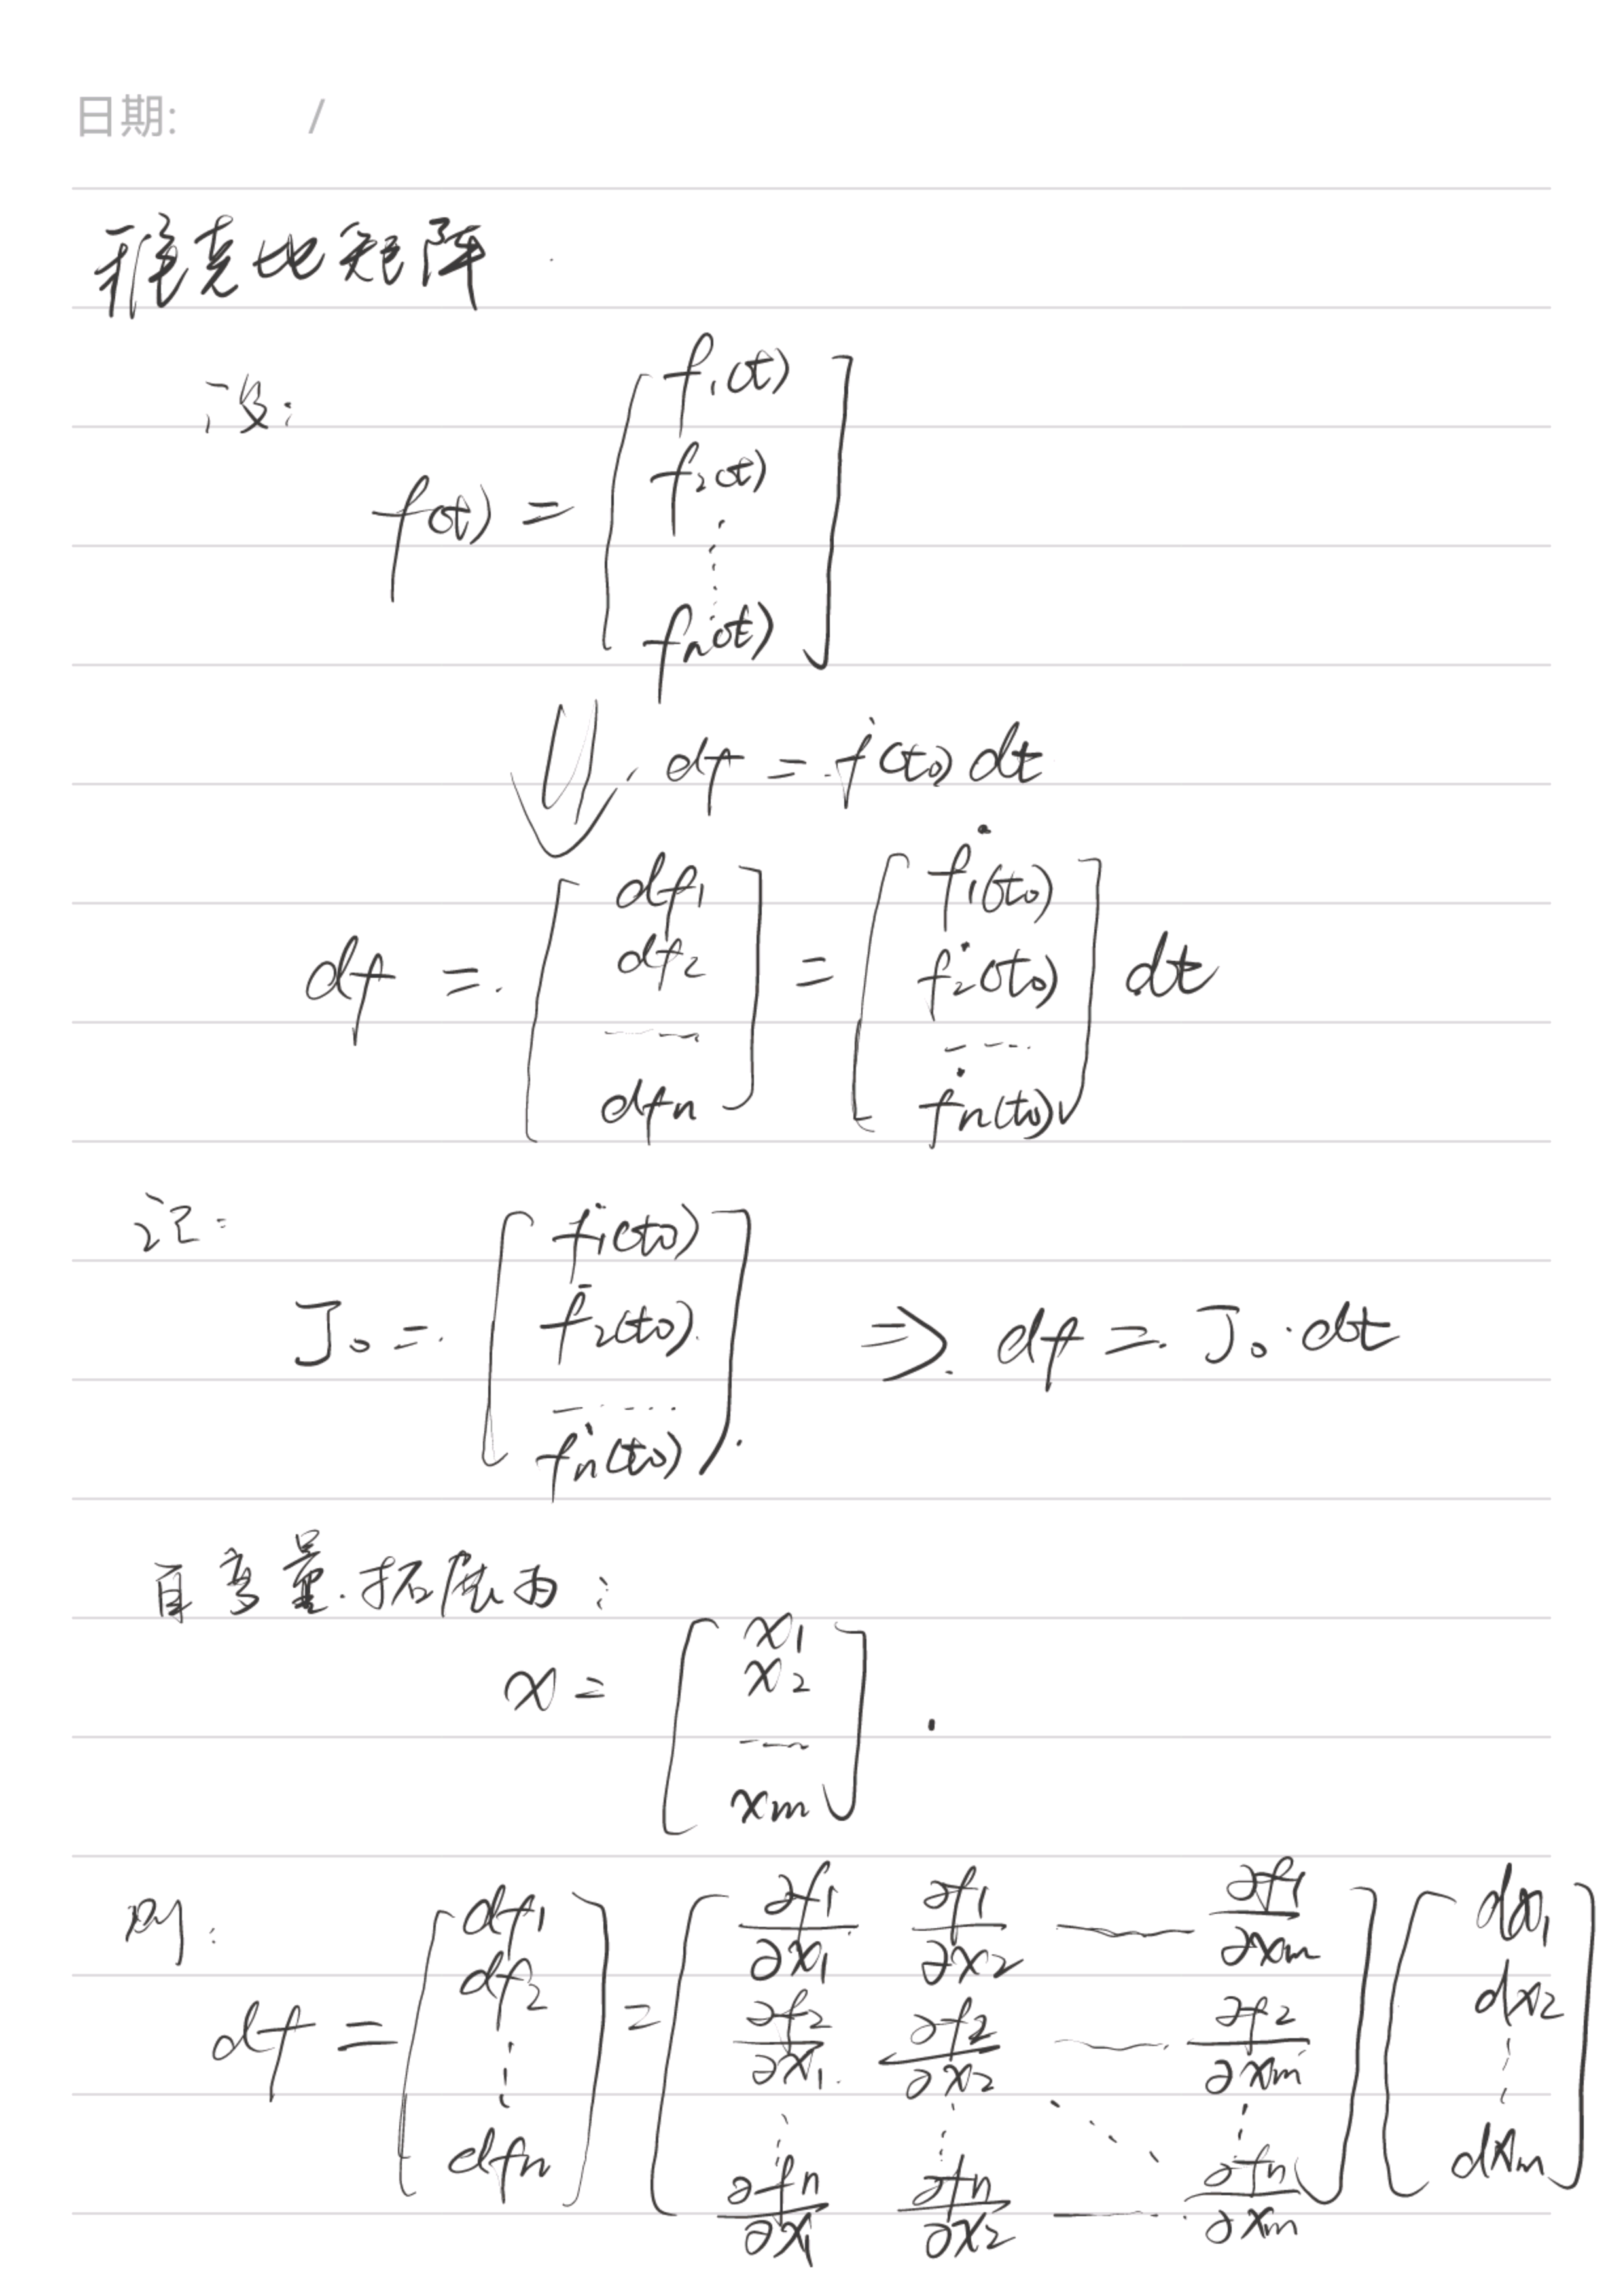 日期: /
雅克比矩阵
设:
f(t) = [f₁(t) f₂(t) ⋮ fₙ(t)]
df = ḟ(t₀) dt
df = [df₁ df₂ ---- dfₙ] = [ḟ₁(t₀) ḟ₂(t₀) ---- ḟₙ(t₀)] dt
记:
J₀ = [ḟ₁(t₀) ḟ₂(t₀) ---- ḟₙ(t₀)] ⇒ df = J₀·dt
自变量拓展为:
x = [x₁ x₂ ---- xₘ]
则:
df = [df₁ df₂ ⋮ dfₙ] = [∂f₁/∂x₁ ∂f₁/∂x₂ — ∂f₁/∂xₘ ∂f₂/∂x₁ ∂f₂/∂x₂ — ∂f₂/∂xₘ ⋮ ⋮ ⋱ ⋮ ∂fₙ/∂x₁ ∂fₙ/∂x₂ — ∂fₙ/∂xₘ] [dx₁ dx₂ ⋮ dxₘ]